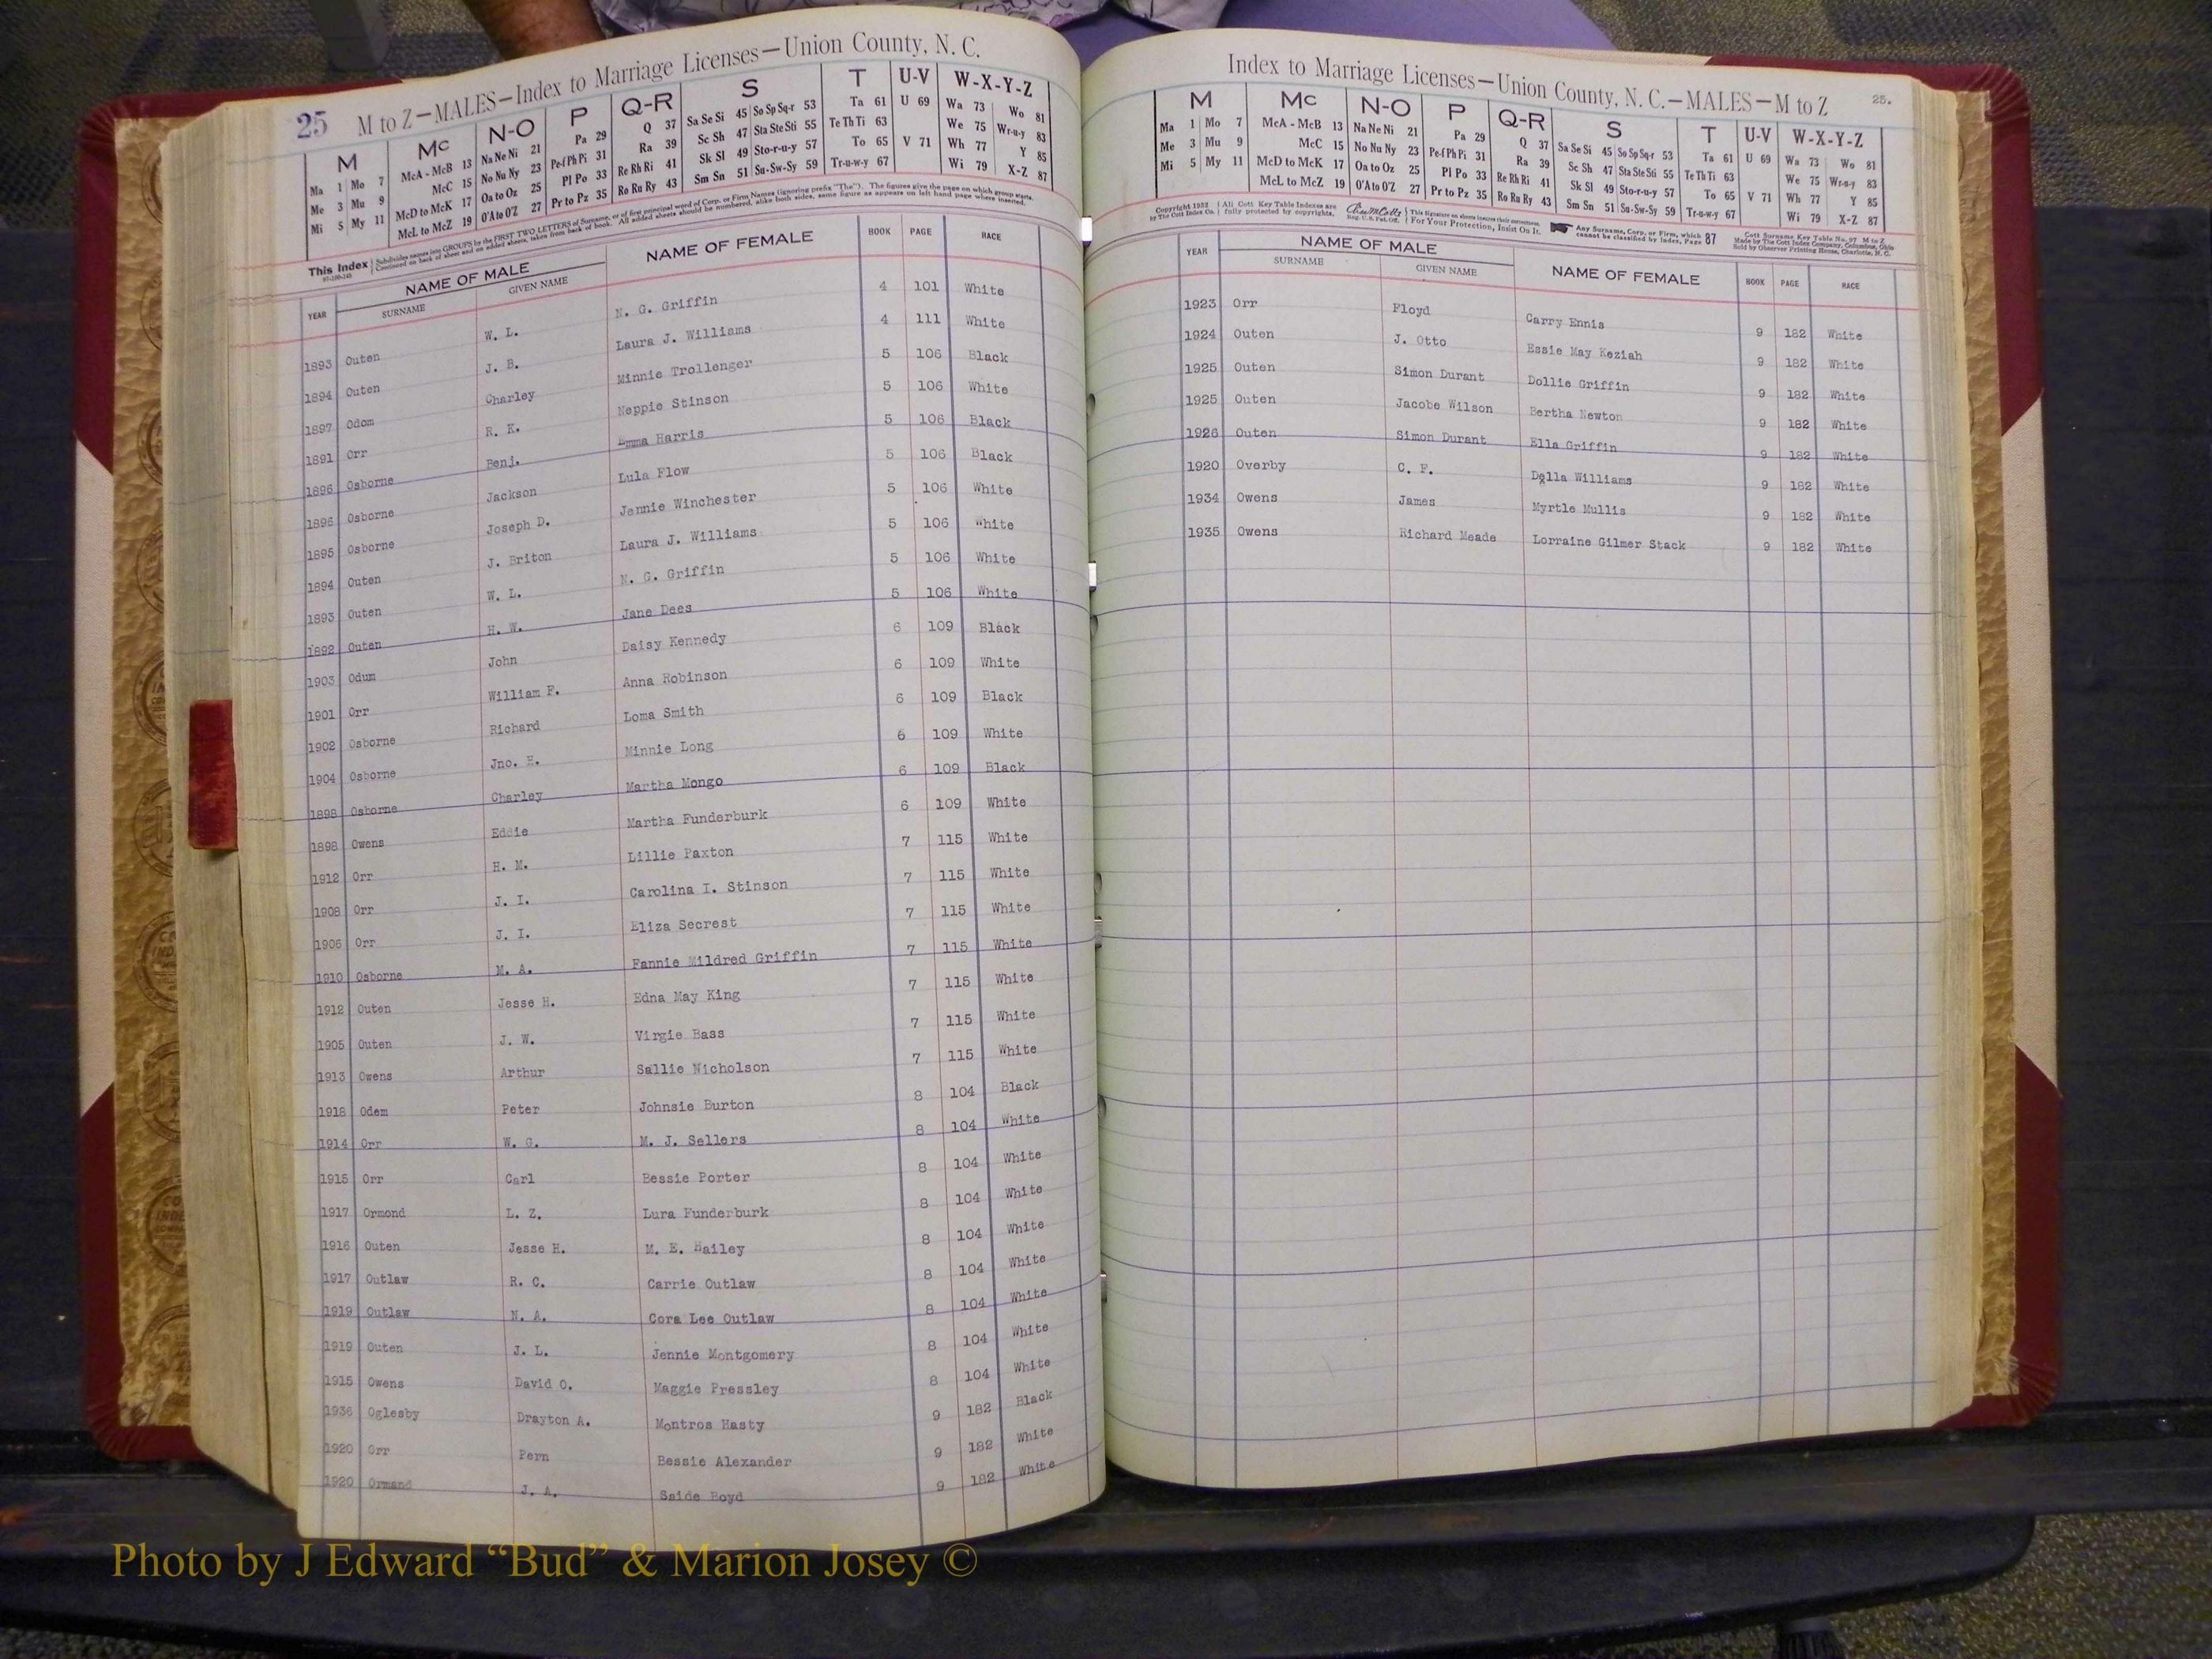 25 M to Z—MALES—Index to Marriage Licenses—Union County, N. C.
M Mc N-O P Q-R S T U-V W-X-Y-Z
Ma 1 Mo 7 McA - McB 13 Na Ne Ni 21 Pa 29 Q 37 Sa Se Si 45 So Sp Sq-r 53 Ta 61 U 69 Wa 73 Wo 81
Me 3 Mu 9 McC 15 No Nu Ny 23 Pe-f Ph Pi 31 Ra 39 Sc Sh 47 Sta Ste Sti 55 Te Th Ti 63 We 75 Wr-u-y 83
McD to McK 17 Oa to Oz 25 Pl Po 33 Re Rh Ri 41 Sk Sl 49 Sto-r-u-y 57 To 65 V 71 Wh 77 Y 85
Mi 5 My 11 McL to McZ 19 O'A to O'Z 27 Pr to Pz 35 Ro Ru Ry 43 Sm Sn 51 Su-Sw-Sy 59 Tr-u-w-y 67 Wi 79 X-Z 87
This Index Subdivides names into GROUPS by the FIRST TWO LETTERS of Surname, or of first principal word of Corp. or Firm Names (ignoring prefix "The"). The figures give the page on which group starts.
Continued on back of sheet and on added sheets, taken from back of book. All added sheets should be numbered, alike both sides, same figure as appears on left hand page where inserted.
YEAR NAME OF MALE NAME OF FEMALE BOOK PAGE RACE
SURNAME GIVEN NAME
1893 Outen W. L. N. G. Griffin 4 101 White
1894 Outen J. B. Laura J. Williams 4 111 White
1897 Odom Charley Minnie Trollenger 5 106 Black
1891 Orr R. K. Neppie Stinson 5 106 White
1896 Osborne Benj. Emma Harris 5 106 Black
1896 Osborne Jackson Lula Flow 5 106 Black
1895 Osborne Joseph D. Jennie Winchester 5 106 White
1894 Outen J. Briton Laura J. Williams 5 106 White
1893 Outen W. L. N. G. Griffin 5 106 White
1892 Outen H. W. Jane Dees 5 106 White
1903 Odum John Daisy Kennedy 6 109 Black
1901 Orr William F. Anna Robinson 6 109 White
1902 Osborne Richard Loma Smith 6 109 Black
1904 Osborne Jno. H. Minnie Long 6 109 White
1898 Osborne Charley Martha Mongo 6 109 Black
1898 Owens Eddie Martha Funderburk 6 109 White
1912 Orr H. M. Lillie Paxton 7 115 White
1908 Orr J. I. Carolina I. Stinson 7 115 White
1906 Orr J. I. Eliza Secrest 7 115 White
1910 Osborne M. A. Fannie Mildred Griffin 7 115 White
1912 Outen Jesse H. Edna May King 7 115 White
1905 Outen J. W. Virgie Bass 7 115 White
1913 Owens Arthur Sallie Nicholson 7 115 White
1918 Odem Peter Johnsie Burton 8 104 Black
1914 Orr W. G. M. J. Sellers 8 104 White
1915 Orr Carl Bessie Porter 8 104 White
1917 Ormond L. Z. Lura Funderburk 8 104 White
1916 Outen Jesse H. M. E. Hailey 8 104 White
1917 Outlaw R. C. Carrie Outlaw 8 104 White
1919 Outlaw N. A. Cora Lee Outlaw 8 104 White
1919 Outen J. L. Jennie Montgomery 8 104 White
1915 Owens David O. Maggie Pressley 8 104 White
1936 Oglesby Drayton A. Montros Hasty 9 182 Black
1920 Orr Pern Bessie Alexander 9 182 White
1920 Ormand J. A. Saide Boyd 9 182 White
Index to Marriage Licenses—Union County, N. C.—MALES—M to Z 25.
M Mc N-O P Q-R S T U-V W-X-Y-Z
Ma 1 Mo 7 McA - McB 13 Na Ne Ni 21 Pa 29 Q 37 Sa Se Si 45 So Sp Sq-r 53 Ta 61 U 69 Wa 73 Wo 81
Me 3 Mu 9 McC 15 No Nu Ny 23 Pe-f Ph Pi 31 Ra 39 Sc Sh 47 Sta Ste Sti 55 Te Th Ti 63 We 75 Wr-u-y 83
Mi 5 My 11 McD to McK 17 Oa to Oz 25 Pl Po 33 Re Rh Ri 41 Sk Sl 49 Sto-r-u-y 57 To 65 V 71 Wh 77 Y 85
McL to McZ 19 O'A to O'Z 27 Pr to Pz 35 Ro Ru Ry 43 Sm Sn 51 Su-Sw-Sy 59 Tr-u-w-y 67 Wi 79 X-Z 87
Copyright 1932 by The Cott Index Co. All Cott Key Table Indexes are fully protected by copyrights. For Your Protection, Insist On It. Any Surname, Corp. or Firm, which cannot be classified by Index, Page 87
Cott Surname Key Table No. 97 M to Z
Made by The Cott Index Company, Columbus, Ohio
Sold by Observer Printing House, Charlotte, N. C.
YEAR NAME OF MALE NAME OF FEMALE BOOK PAGE RACE
SURNAME GIVEN NAME
1923 Orr Floyd Carry Ennis 9 182 White
1924 Outen J. Otto Essie May Keziah 9 182 White
1925 Outen Simon Durant Dollie Griffin 9 182 White
1925 Outen Jacobe Wilson Bertha Newton 9 182 White
1926 Outen Simon Durant Ella Griffin 9 182 White
1920 Overby C. F. Della Williams 9 182 White
1934 Owens James Myrtle Mullis 9 182 White
1935 Owens Richard Meade Lorraine Gilmer Stack 9 182 White
Photo by J Edward “Bud” & Marion Josey ©